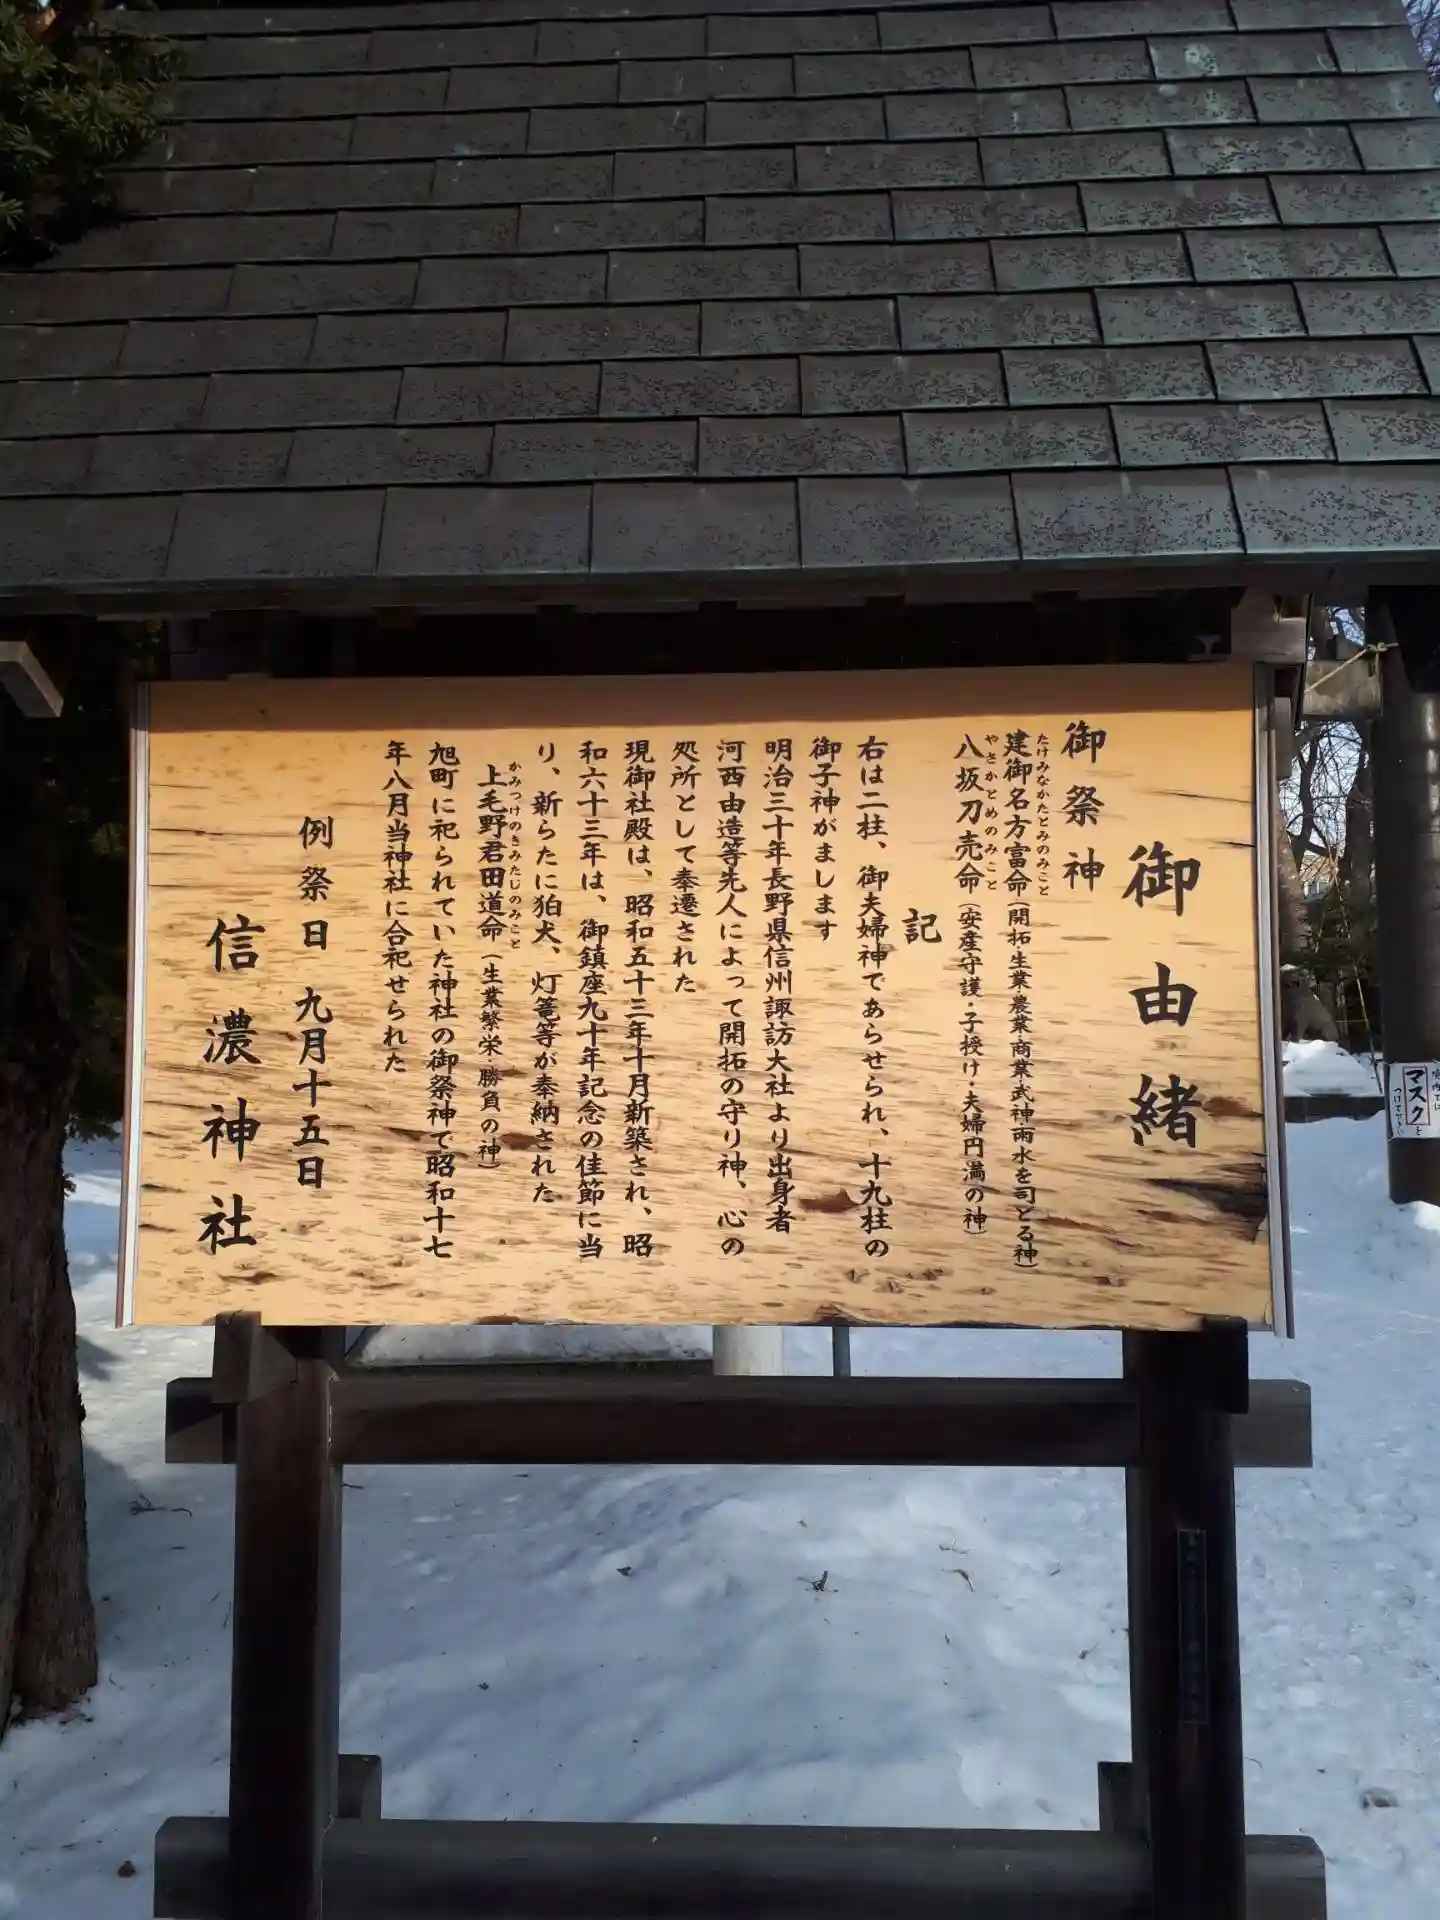 御由緒
御祭神
たけみなかたとみのみこと
建御名方富命(開拓生業・農業・商業・武神雨水を司どる神)
やさかとめのみこと
八坂刀売命(安産守護・子授け・夫婦円満の神)
記
右は二柱、御夫婦神であらせられ、十九柱の
御子神がまします
明治三十年長野県信州諏訪大社より出身者
河西由造等先人によって開拓の守り神、心の
処所として奉遷された
現御社殿は、昭和五十三年十月新築され、昭
和六十三年は、御鎮座九十年記念の佳節に当
り、新らたに狛犬、灯篭等が奉納された
かみつけのきみたじのみこと
上毛野君田道命(生業繁栄・勝負の神)
旭町に祀られていた神社の御祭神で昭和十七
年八月当神社に合祀せられた
例祭日 九月十五日
信濃神社
マスクを
つけて下さい